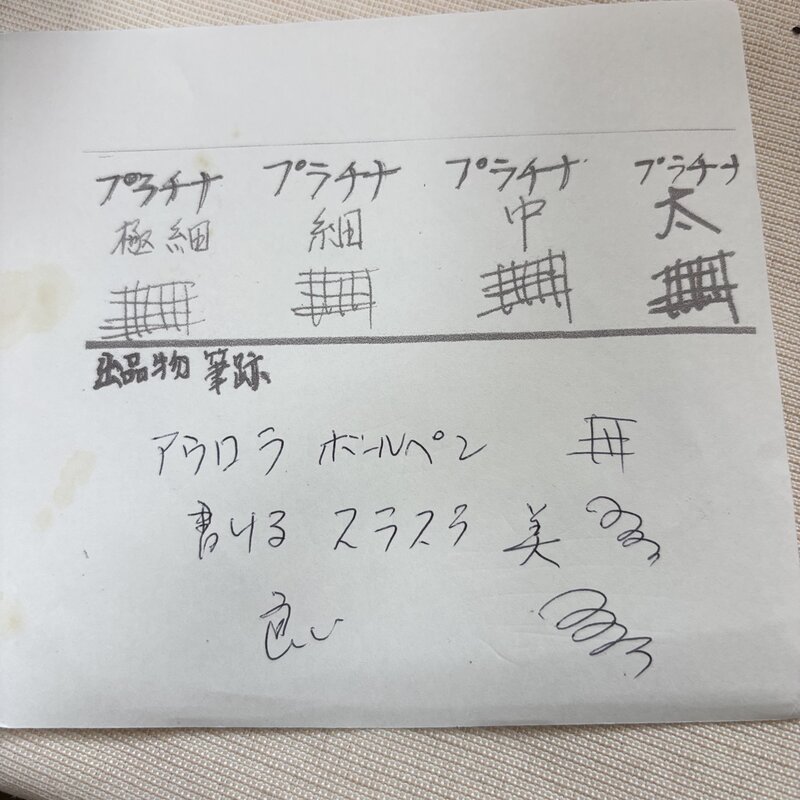 プラチナ プラチナ プラチナ プラチナ
極細 細 中 太
出品物 筆跡
アウロラ ボールペン
書ける スラスラ 美
良い